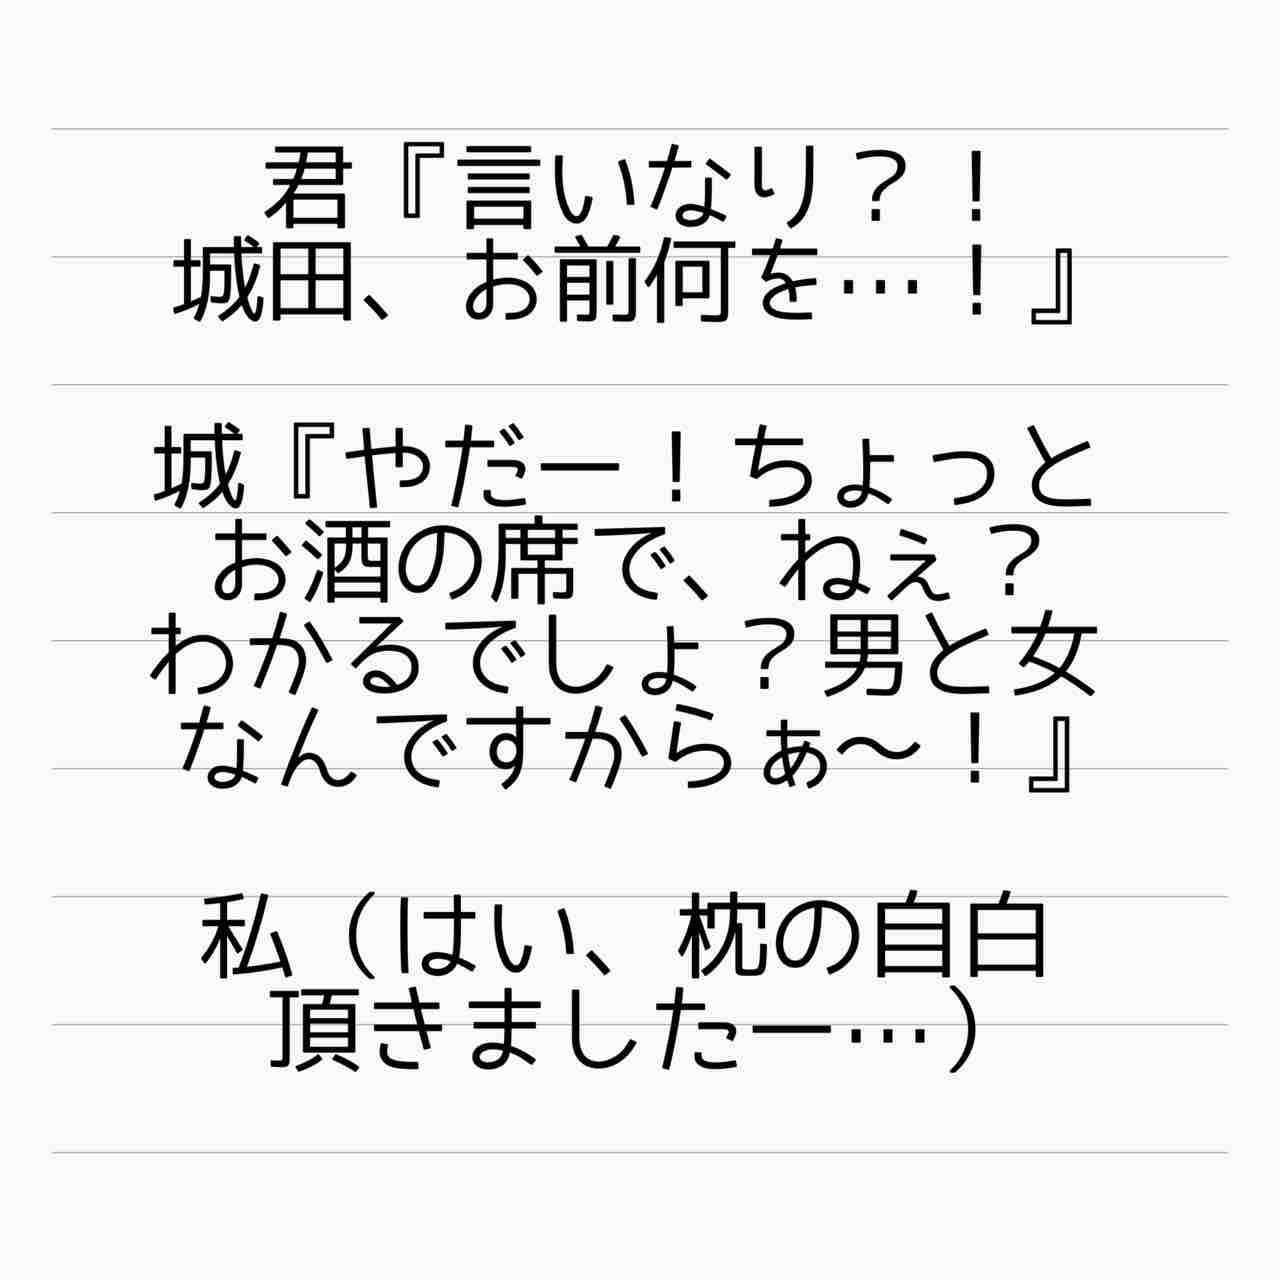 君『言いなり？！
城田、お前何を…！』
城『やだー！ちょっと
お酒の席で、ねぇ？
わかるでしょ？男と女
なんですからぁ〜！』
私（はい、枕の自白
頂きましたー…）